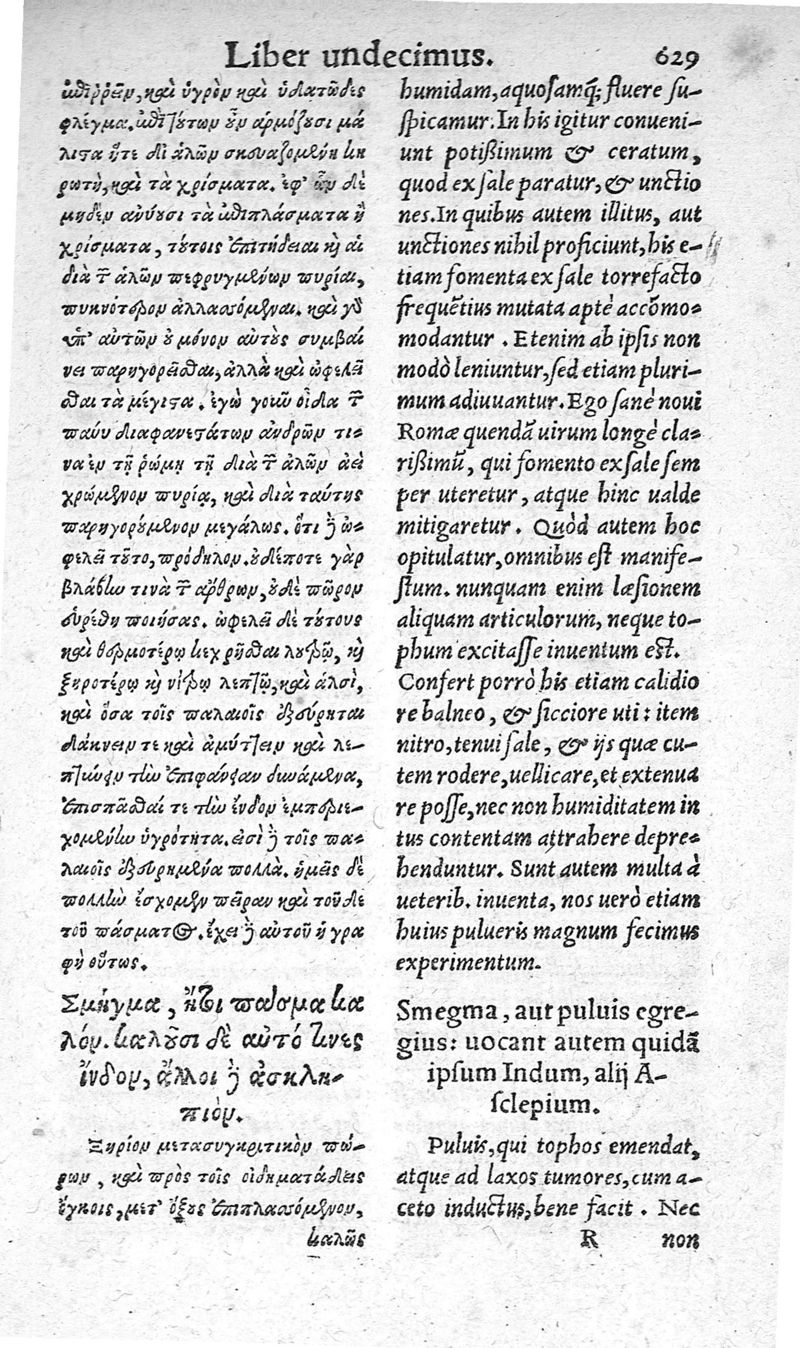 Liber undecimus. 629
ἐπιῤῥεῖν, καὶ ὑγρὸν καὶ ὑδατῶδες
φλέγμα. ἐπὶ τούτων οὖν ἁρμόζουσι μά
λιστα ἥτε διὰ ἁλῶν σκευαζομένη κη
ρωτὴ, καὶ τὰ χρίσματα. ἐφ' ὧν δὲ
μηδὲν ἀνύουσι τὰ ἐπιπλάσματα ἢ
χρίσματα, τούτοις ἐπιτήδειαι καὶ αἱ
διὰ τῶν ἁλῶν πεφρυγμένων πυρίαι,
πυκνότερον ἀλλασσόμεναι. καὶ γὰρ
ὑπ' αὐτῶν οὐ μόνον αὐτοὺς συμβαί
νει παρηγορεῖσθαι, ἀλλὰ καὶ ὠφελεῖ
σθαι τὰ μέγιστα. ἐγὼ γοῦν οἶδα τῶν
πάνυ διαφανεστάτων ἀνδρῶν τι-
να ἐν τῇ ῥώμῃ τῇ διὰ τῶν ἁλῶν ἀεὶ
χρώμενον πυρίᾳ, καὶ διὰ ταύτης
παρηγορούμενον μεγάλως. ὅτι δὲ ὠ-
φελεῖ τοῦτο, πρόδηλον. οὐδέποτε γὰρ
βλάβην τινὰ τῶν ἄρθρων, οὐδὲ πῶρον
εὑρέθη ποιήσας. ὠφελεῖ δὲ τούτους
καὶ θερμοτέρῳ κεχρῆσθαι λουτρῷ, καὶ
ξηροτέρῳ καὶ νίτρῳ λεπτῷ, καὶ ἁλσὶ,
καὶ ὅσα τοῖς παλαιοῖς ἐξεύρηται
δάκνειν τε καὶ ἀμύττειν καὶ λε-
πτύνειν τὴν ἐπιφάνειαν δυνάμενα,
ἐπισπᾶσθαί τε τὴν ἔνδον ἐμπεριε-
χομένην ὑγρότητα. εἰσὶ δὲ τοῖς πα-
λαιοῖς ἐξευρημένα πολλὰ. ἡμεῖς δὲ
πολλὴν ἔσχομεν πεῖραν καὶ τοῦδε
τοῦ πάσματος. ἔχει δὲ αὐτοῦ ἡ γρα
φὴ οὕτως.
Σμῆγμα, ἤτοι πάσμα κα
λόν. καλοῦσι δὲ αὐτό τινες
ἴνδον, ἄλλοι δὲ ἀσκλη-
πιόν.
Ξηρίον μετασυγκριτικὸν πώ-
ρων, καὶ πρὸς τοῖς οἰδηματώδεις
ὄγκοις, μετ' ὄξους ἐπιπλασσόμενον,
καλῶς
humidam, aquosamq́; fluere su-
spicamur. In his igitur conueni-
unt potißimum & ceratum,
quod ex sale paratur, & unctio
nes. In quibus autem illitus, aut
unctiones nihil proficiunt, his e-
tiam fomenta ex sale torrefacto
frequẽtius mutata aptè accõmo-
modantur. Etenim ab ipsis non
modò leniuntur, sed etiam pluri-
mum adiuuantur. Ego sanè noui
Romæ quendã uirum longè cla-
rißimũ, qui fomento ex sale sem
per uteretur, atque hinc ualde
mitigaretur. Quòd autem hoc
opitulatur, omnibus est manife-
stum. nunquam enim læsionem
aliquam articulorum, neque to-
phum excitasse inuentum est.
Confert porrò his etiam calidio
re balneo, & sicciore uti: item
nitro, tenui sale, & ijs quæ cu-
tem rodere, uellicare, et extenua
re posse, nec non humiditatem in
tus contentam attrahere depre-
henduntur. Sunt autem multa à
ueterib. inuenta, nos uerò etiam
huius pulueris magnum fecimus
experimentum.
Smegma, aut puluis egre-
gius: uocant autem quidã
ipsum Indum, alij A-
sclepium.
Puluis, qui tophos emendat,
atque ad laxos tumores, cum a-
ceto inductus, bene facit. Nec
R non